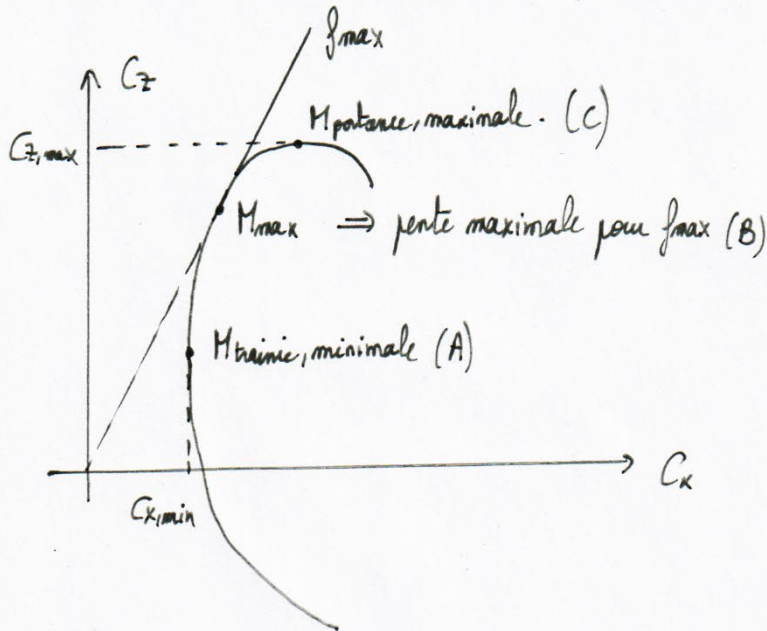 fmax
Cz
Mportance, maximale. (C)
Cz,max
Mmax ⇒ pente maximale pour fmax (B)
Mtrainée, minimale (A)
Cx
Cx,min